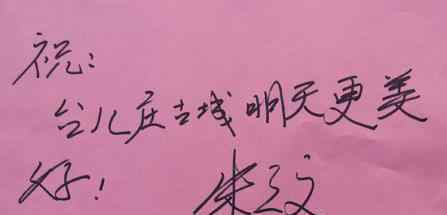 祝：
台儿庄古城明天更美
好！
朱文